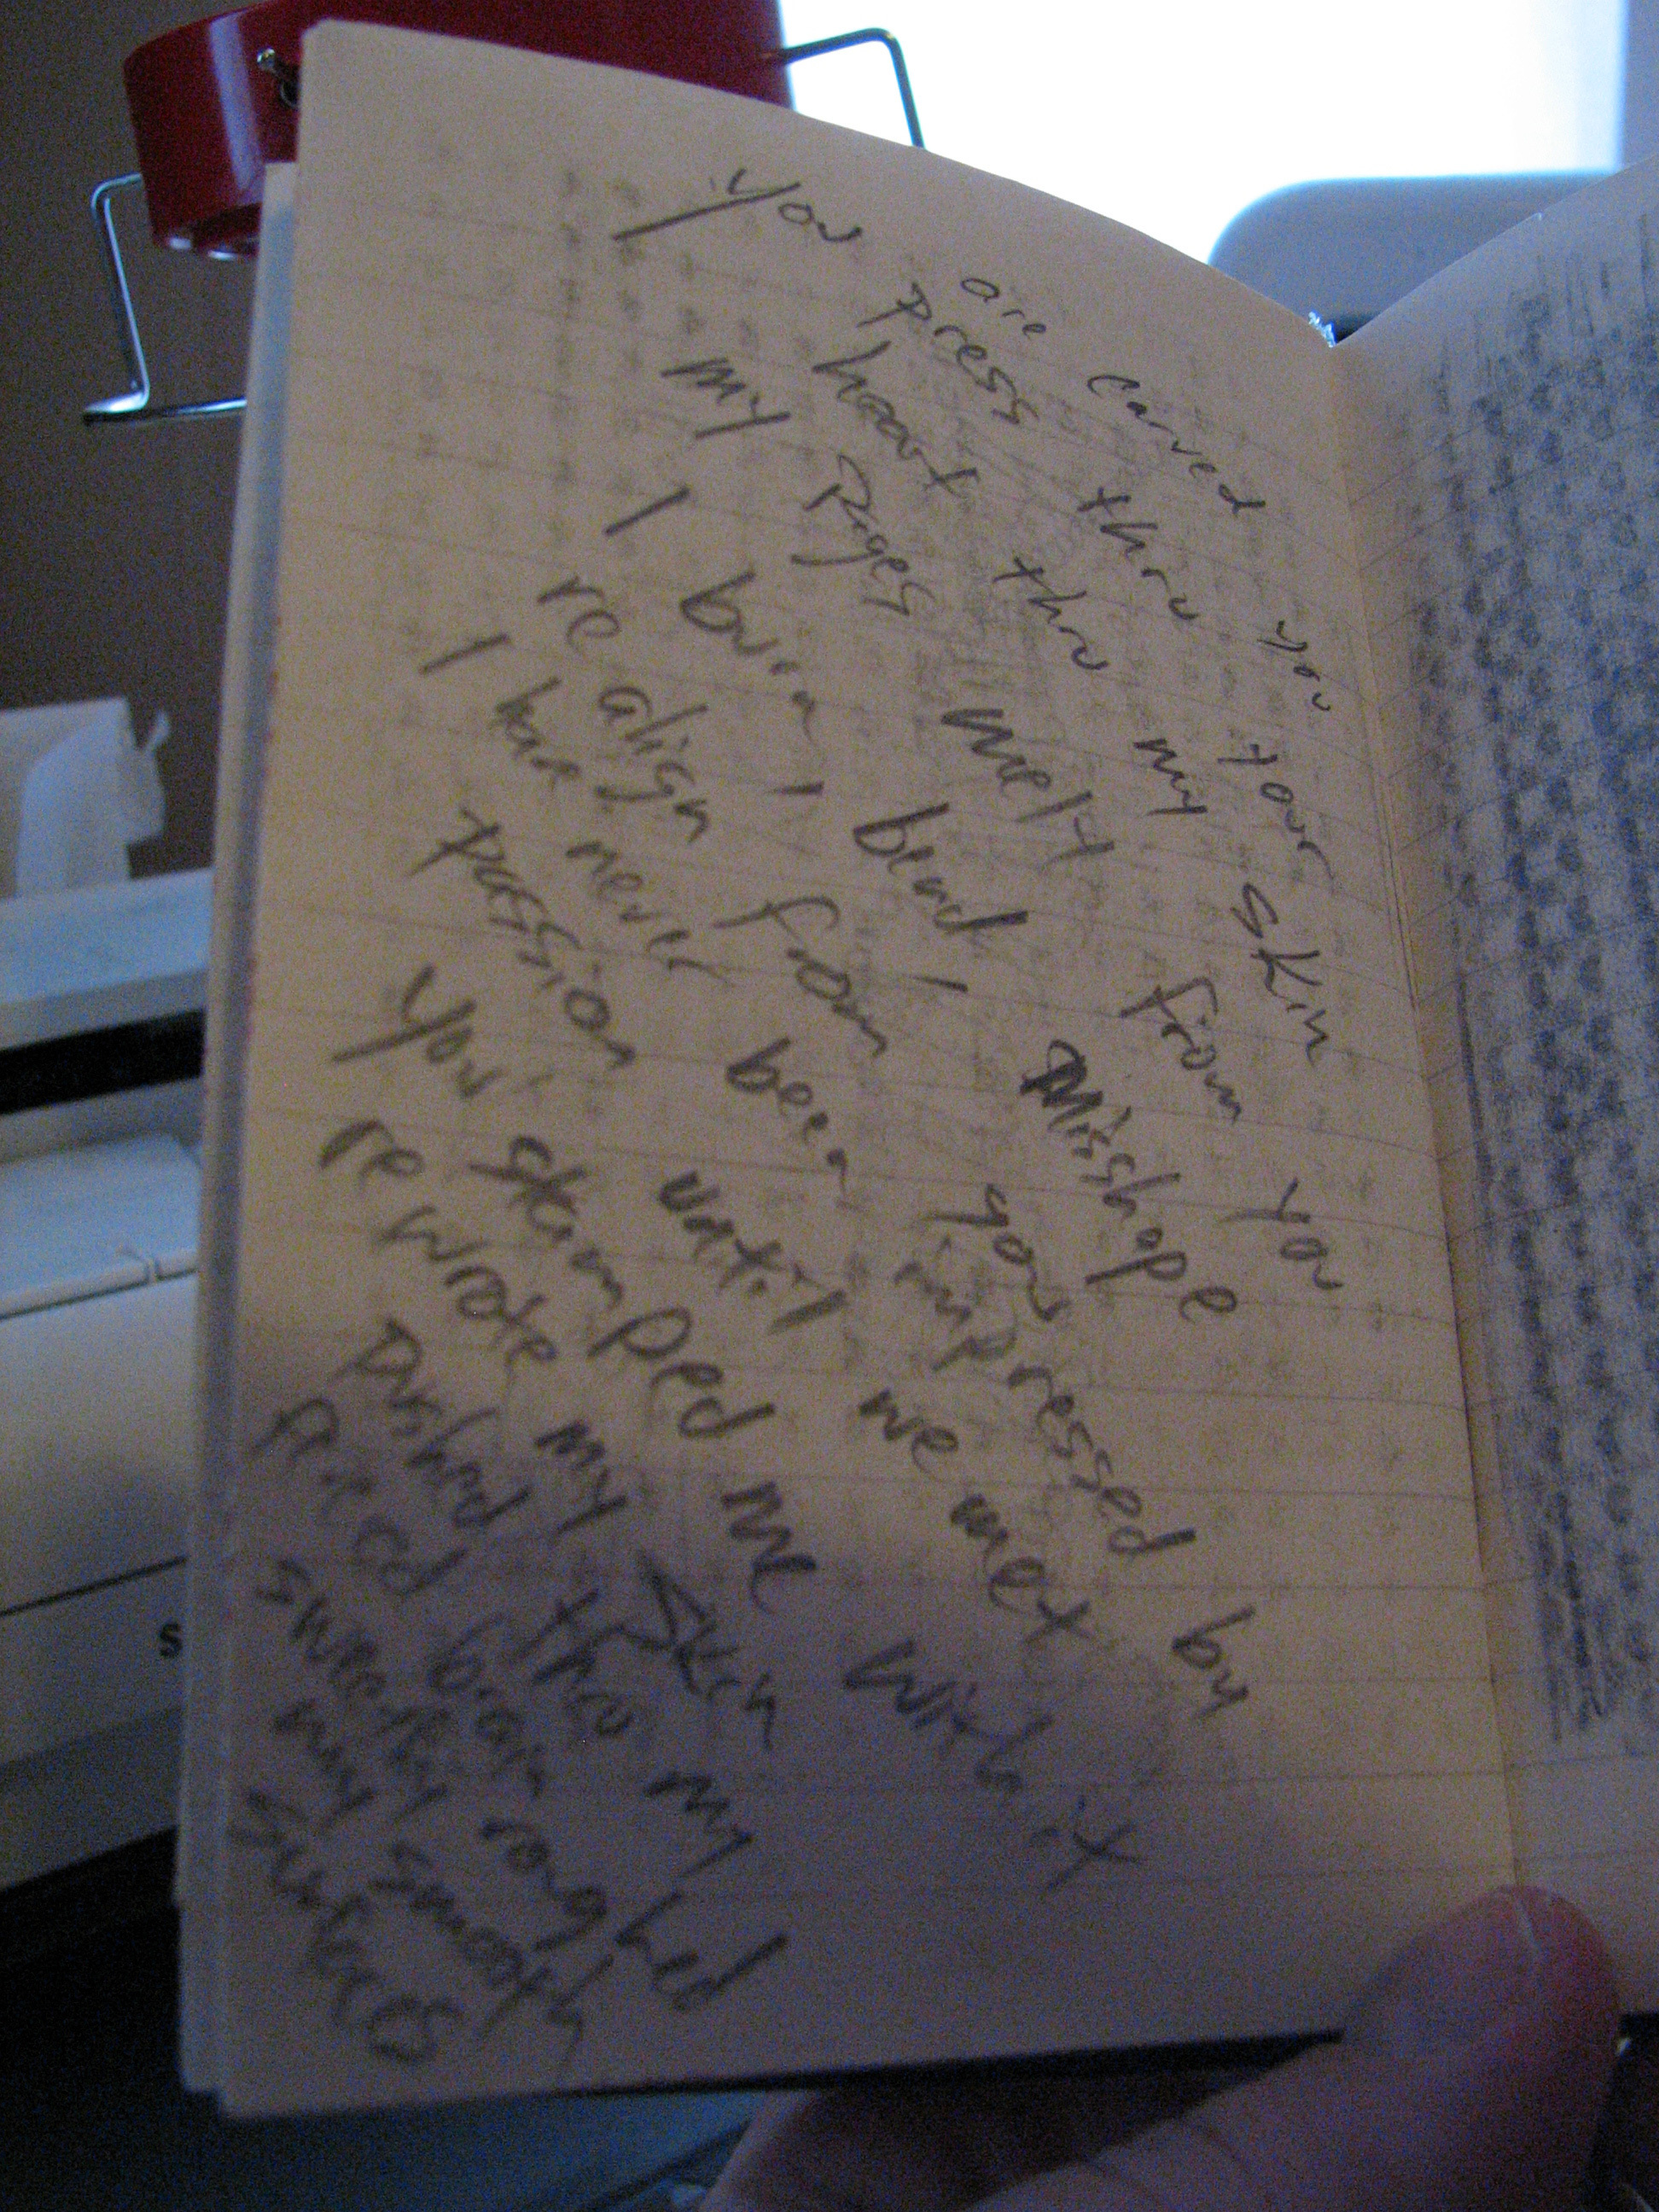 You are carved you
press thru your
heat thru my skin
my pages melt from you
I burn, I bend, I misshape
re align from you
I have never been impressed by
passion until we met
You stamped me with it
re wrote my skin
pushed thru my
brain
sweetly roughed
my smooth
surfaces
s